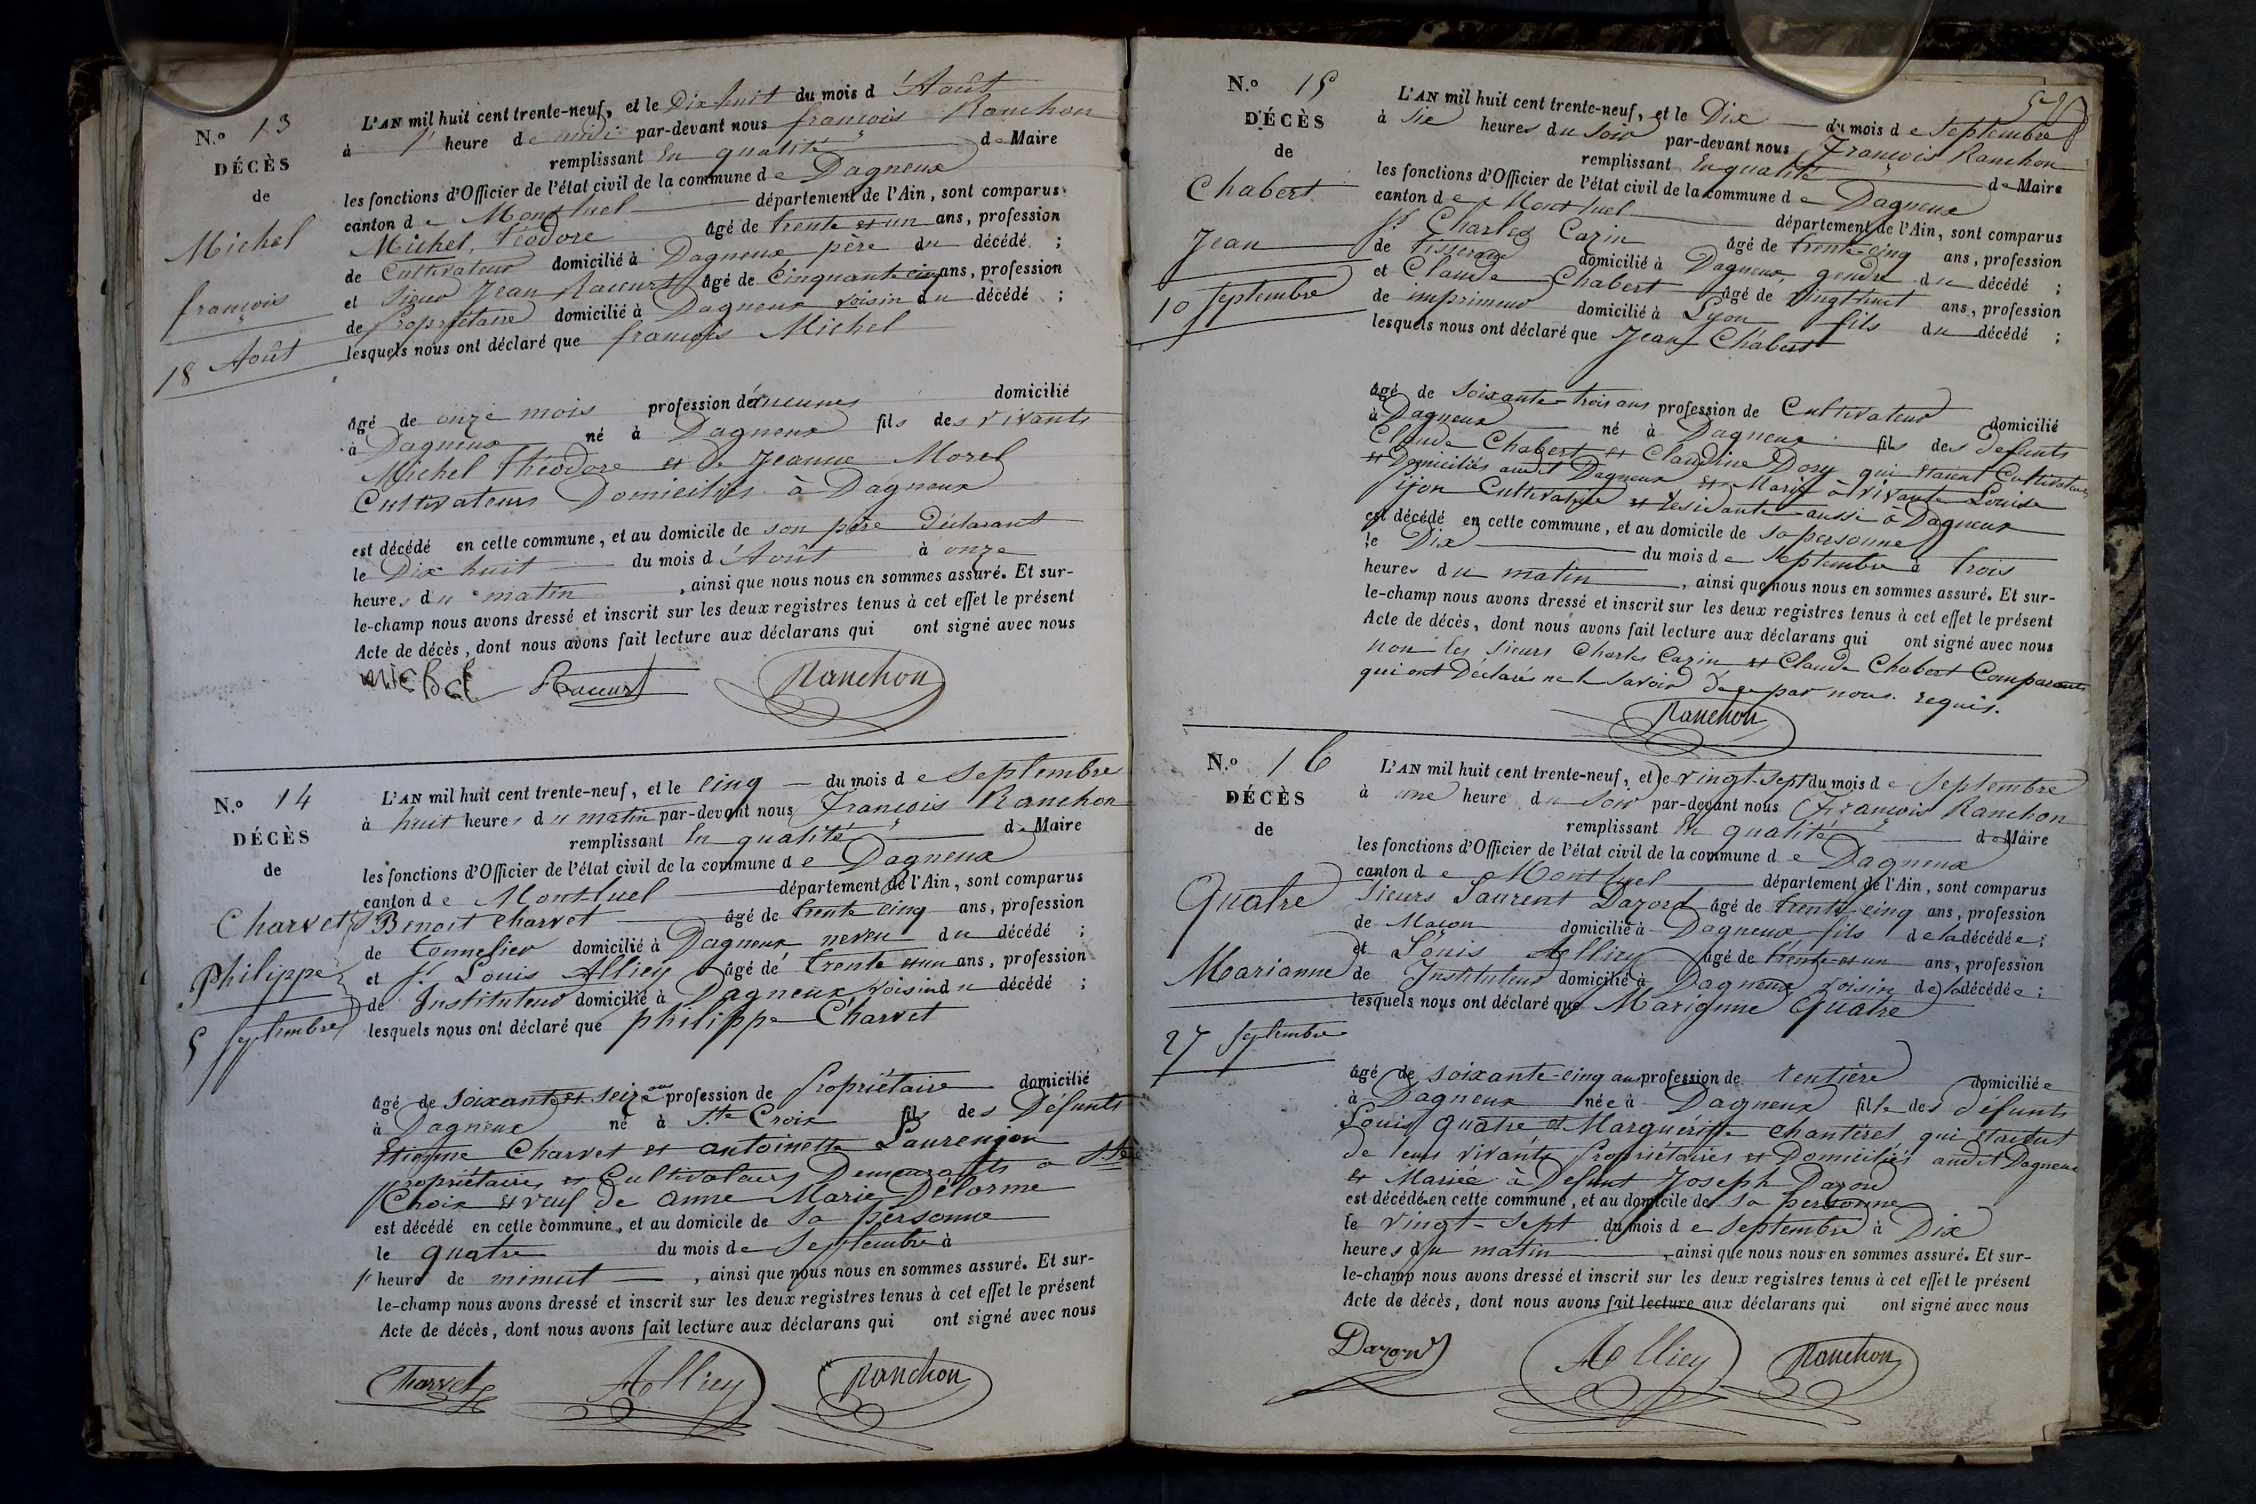 N.º 13
DÉCÈS
de
Michel
françois
18 Août
L'AN mil huit cent trente-neuf, et le Dix huit du mois d'Août
à 1 heure de midi par-devant nous françois Ranchon
remplissant En qualité de Maire
les fonctions d'Officier de l'état civil de la commune de Dagneux
canton de Montluel département de l'Ain, sont comparus
Michel, théodore âgé de trente et un ans, profession
de Cultivateur domicilié à Dagneux père du décédé ;
et Sieur Jean Racurt âgé de Cinquante cinq ans, profession
de Propriétaire domicilié à Dagneux voisin du décédé ;
lesquels nous ont déclaré que françois Michel
âgé de onze mois profession d'aucunes domicilié
à Dagneux né à Dagneux fils des vivants
Michel théodore et de Jeanne Morel
Cultivateurs Domiciliés à Dagneux
est décédé en cette commune, et au domicile de son père Déclarant
le Dix huit du mois d'Août à onze
heures du matin, ainsi que nous nous en sommes assuré. Et sur-
le-champ nous avons dressé et inscrit sur les deux registres tenus à cet effet le présent
Acte de décès, dont nous avons fait lecture aux déclarans qui ont signé avec nous
MICHEL Racurt Ranchon
N.º 14
DÉCÈS
de
Charvet
Philippe
5 Septembre
L'AN mil huit cent trente-neuf, et le cinq du mois de Septembre
à huit heures du matin par-devant nous François Ranchon
remplissant En qualité de Maire
les fonctions d'Officier de l'état civil de la commune de Dagneux
canton de Montluel département de l'Ain, sont comparus
Sr Benoit Charvet âgé de trente cinq ans, profession
de Tonnelier domicilié à Dagneux neveu du décédé ;
et Sr Louis Alliey âgé de trente et un ans, profession
de Instituteur domicilié à Dagneux voisin du décédé ;
lesquels nous ont déclaré que philippe Charvet
âgé de soixante et seize ans profession de Propriétaire domicilié
à Dagneux né à Ste Croix fils des Défunts
Etienne Charvet et antoinette Laurençon
propriétaires et Cultivateurs Demeurants à Ste
Croix et veuf de Anne Marie Délorme
est décédé en cette commune, et au domicile de Sa personne
le quatre du mois de Septembre à
1 heure de minuit, ainsi que nous nous en sommes assuré. Et sur-
le-champ nous avons dressé et inscrit sur les deux registres tenus à cet effet le présent
Acte de décès, dont nous avons fait lecture aux déclarans qui ont signé avec nous
Charvet Alliey Ranchon
N.º 15
DÉCÈS
de
Chabert
Jean
10 Septembre
L'AN mil huit cent trente-neuf, et le Dix du mois de Septembre
à Sie heures du Soir par-devant nous François Ranchon
remplissant En qualité de Maire
les fonctions d'Officier de l'état civil de la commune de Dagneux
canton de Montluel département de l'Ain, sont comparus
Sr Charles Cazin âgé de trente cinq ans, profession
de tisserand domicilié à Dagneux gendre du décédé ;
et Claude Chabert âgé de vingt huit ans, profession
de imprimeur domicilié à Lyon fils du décédé ;
lesquels nous ont déclaré que Jean Chabert
âgé de soixante-trois ans profession de Cultivateur domicilié
à Dagneux né à Dagneux fils des Defunts
Claude Chabert et Claudine Dory qui étaient Cultivateurs
et Domiciliés audit Dagneux et Marié à vivante Louise
Cultivatrice et résidante aussi à Dagneux
est décédé en cette commune, et au domicile de Sa personne
le Dix du mois de Septembre à trois
heures du matin, ainsi que nous nous en sommes assuré. Et sur-
le-champ nous avons dressé et inscrit sur les deux registres tenus à cet effet le présent
Acte de décès, dont nous avons fait lecture aux déclarans qui ont signé avec nous
non les Sieurs Charles Cazin et Claude Chabert Comparants
qui ont Déclarés ne le Savoir de ce par nous requis.
Ranchon
N.º 16
DÉCÈS
de
Quatre
Marianne
27 Septembre
L'AN mil huit cent trente-neuf, et le vingt-sept du mois de Septembre
à une heure du Soir par-devant nous François Ranchon
remplissant En qualité de Maire
les fonctions d'Officier de l'état civil de la commune de Dagneux
canton de Montluel département de l'Ain, sont comparus
Sieurs Laurent Dazord âgé de trente cinq ans, profession
de Maçon domicilié à Dagneux fils de la décédée ;
et Louis Alliey âgé de trente et un ans, profession
de Instituteur domicilié à Dagneux voisin de la décédée ;
lesquels nous ont déclaré que Marianne Quatre
âgé de soixante-cinq ans profession de rentière domiciliée
à Dagneux née à Dagneux fille des défunts
Louis Quatre et Marguéritte Chantérel qui étaient
de leurs vivants Propriétaires et Domiciliés audit Dagneux
et Mariée à Defunt Joseph Dazord
est décédée en cette commune, et au domicile de Sa personne
le vingt-sept du mois de Septembre à Dix
heures du matin, ainsi que nous nous en sommes assuré. Et sur-
le-champ nous avons dressé et inscrit sur les deux registres tenus à cet effet le présent
Acte de décès, dont nous avons fait lecture aux déclarans qui ont signé avec nous
Dazord Alliey Ranchon